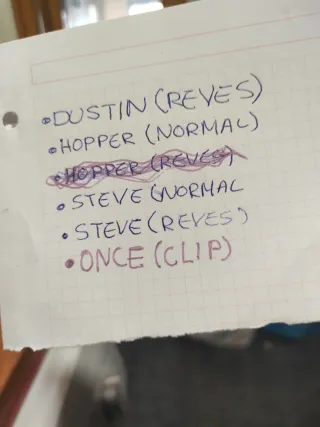 •DUSTIN (REVES)
•HOPPER (NORMAL)
•HOPPER (REVES)
•STEVE (NORMAL
•STEVE (REVES)
•ONCE (CLIP)